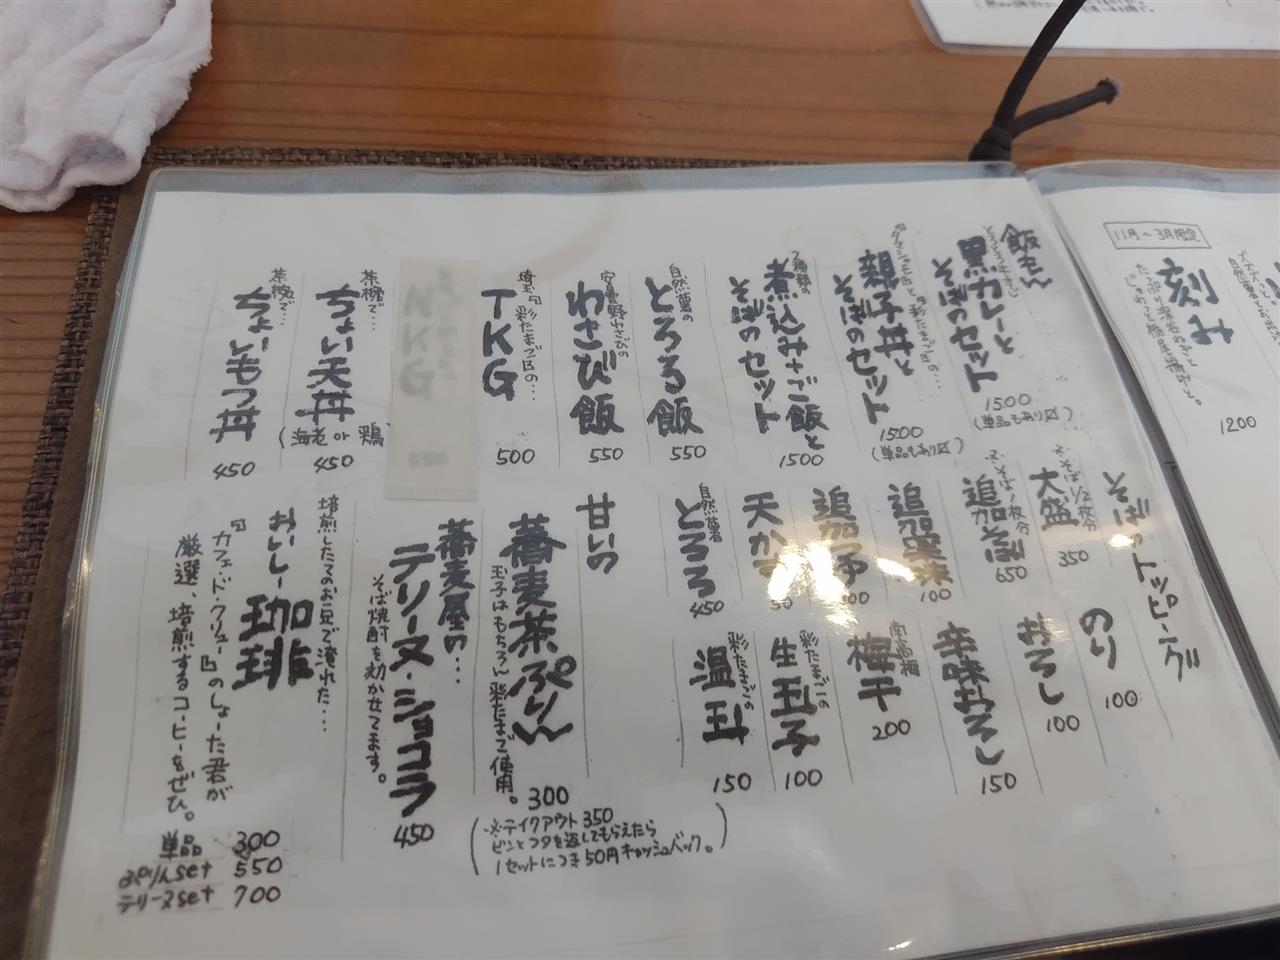 11月〜3月限定
刻み
1200
飯もん
黒カレーと
そばのセット
1500
(単品もあり〼)
親子丼と
そばのセット
1500
(単品もあり〼)
煮込みさご飯と
そばのセット
1500
自然薯の
とろろ飯
550
安曇野わさびの
わさび飯
550
埼玉『彩たまご』の…
TKG
500
茶椀で…
ちょい天丼
(海老 or 鶏)
450
茶椀で…
ちょいもつ丼
450
そばのトッピーング
※そば1/2枚分
大盛
350
※そば1枚分
追加そば
650
追加薬味
100
天かす
50
自然薯
とろろ
450
のり
100
おろし
100
辛味おろし
150
南高梅
梅干
200
彩たまごの
生玉子
100
彩たまごの
温玉
150
甘いの
蕎麦茶ぷりん
玉子はもちろん彩たまご使用。
300
(※テイクアウト350
ビンとフタを返してもらえたら
1セットにつき50円キャッシュバック。)
蕎麦屋の…
テリーヌ・ショコラ
そば焼酎を効かせてます。
450
培煎したてのお豆で淹れた…
おいしー珈琲
『カフェ・ド・クリュー』のしょーた君が
厳選、培煎するコーヒーをぜひ。
単品 300
ぷりんset 550
テリーヌset 700